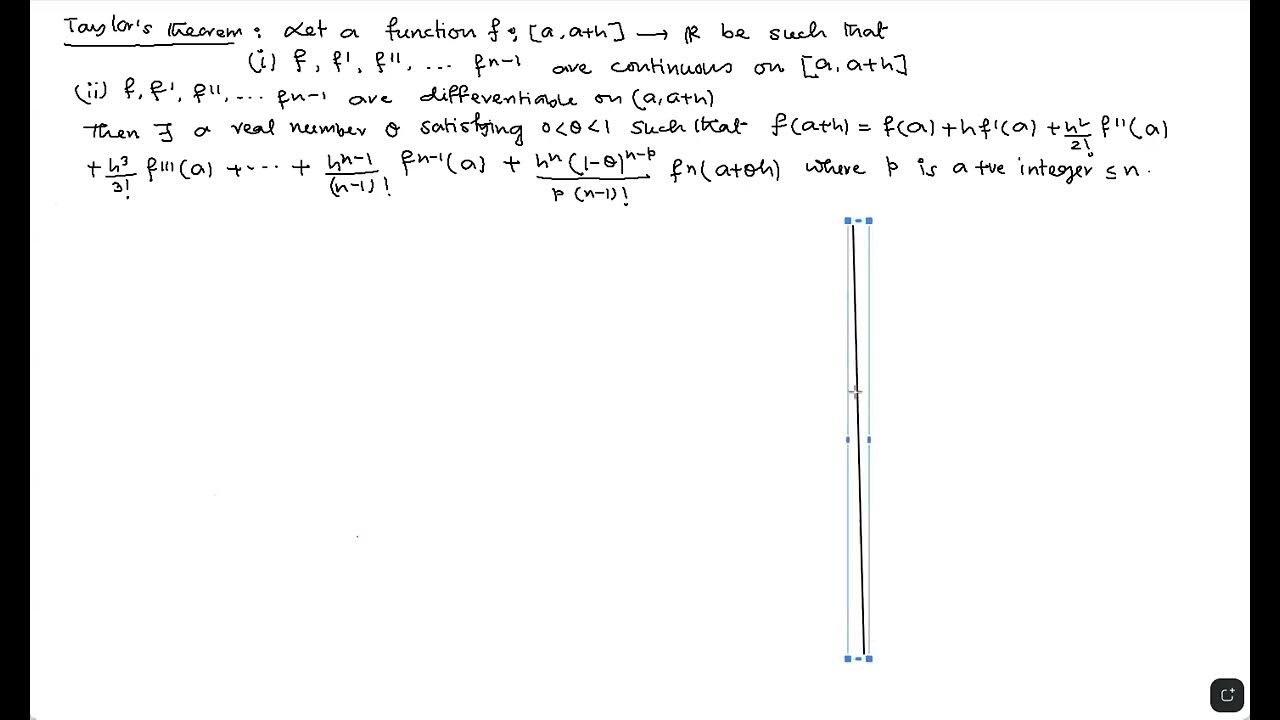 Taylor's theorem : Let a function f : [a, a+h] → ℝ be such that
(i) f, f', f'', ... fn-1 are continuous on [a, a+h]
(ii) f, f', f'', ... fn-1 are differentiable on (a, a+h)
Then ∃ a real number θ satisfying 0<θ<1 such that f(a+h) = f(a) + hf'(a) + h²/2! f''(a)
+ h³/3! f'''(a) + ... + hⁿ⁻¹/(n-1)! fⁿ⁻¹(a) + hⁿ(1-θ)ⁿ⁻ᵖ/p(n-1)! fn(a+θh) where p is a +ve integer ≤ n.